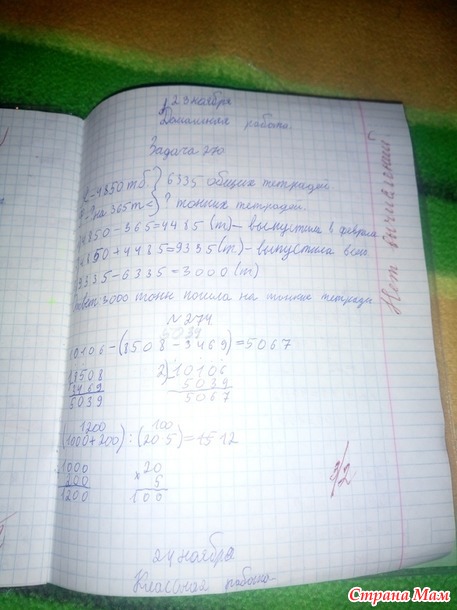 23 ноября
Домашняя работа.
Задача 270
4850 т б. } 6335 общих тетрадей.
? на 365 т < } ? тонких тетрадей.
4850-365=4485 (т)- выпустила в феврале
4850+4485=9335(т)- выпустила всего
9335-6335=3000(т)
Ответ: 3000 тонн пошла на тонкие тетради
Нет вычислений!
№274.
5039
10106-(8508-3469)=5067
1) 8508
3469
5039
2) 10106
5039
5067
1200 100
(1000+200):(20·5)=1512
1000
200
1200
20
× 5
100
3/2
24 ноября
Классная работа.
Страна Мам